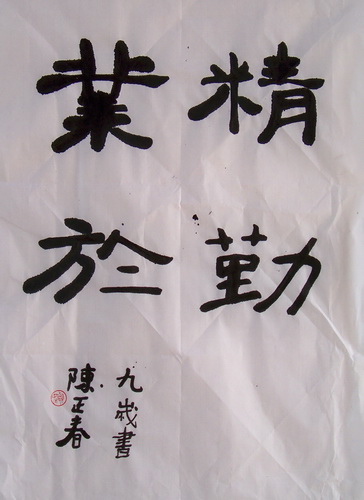 業精
於勤
陳正春
九歲書